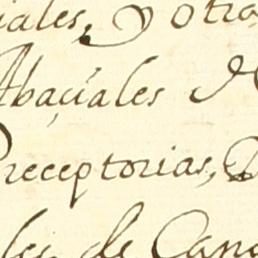 iales, y otra
Abaçiales
Preceptorias,
les de Can